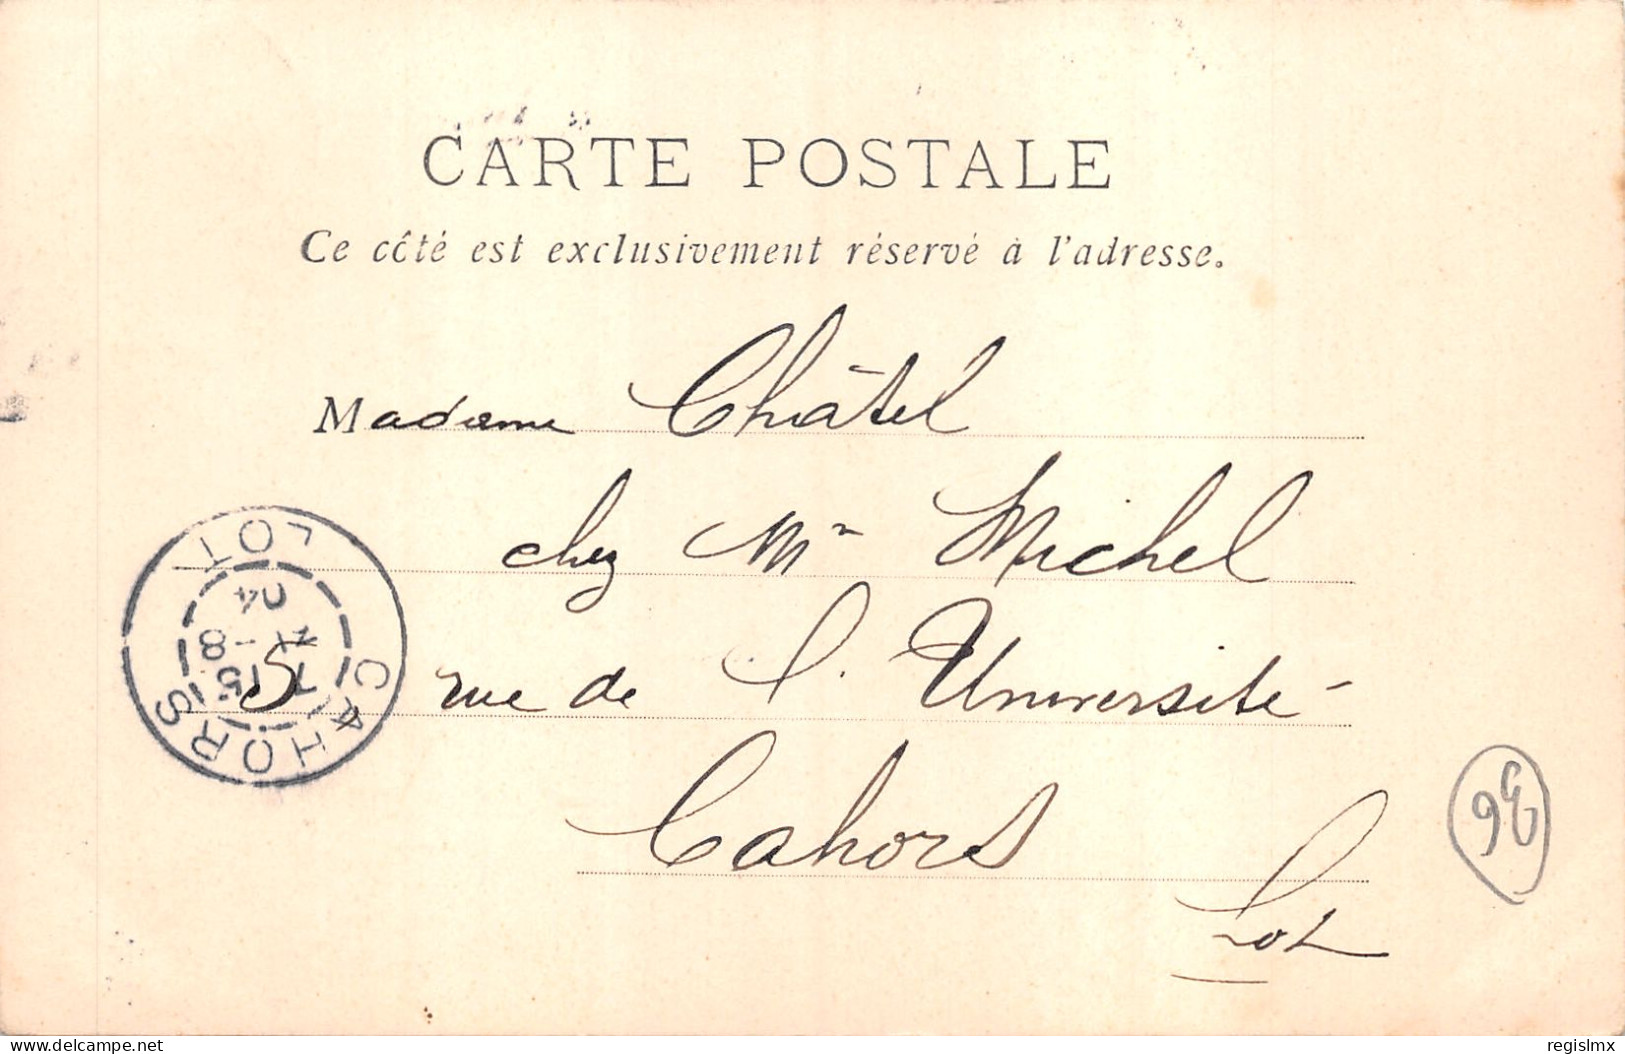 CARTE POSTALE
Ce côté est exclusivement réservé à l'adresse.
Madame Châtel
chez Mr Michel
5 rue de l'Université
Cahors
Lot
CAHORS
LOT
15
-8
04
36
Delcampe.net
regislmx